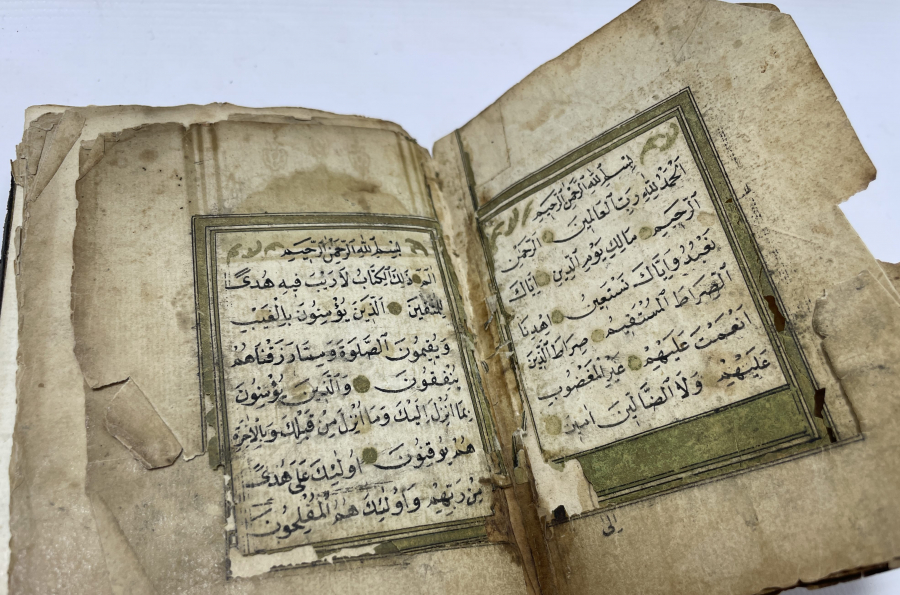 بسم الله الرحمن الرحيم
الحمد لله رب العالمين
الرحمن
الرحيم مالك يوم الدين اياك
نعبد واياك نستعين اهدنا
الصراط المستقيم صراط الذين
انعمت عليهم غير المغضوب
عليهم ولا الضالين امين
الى
بسم الله الرحمن الرحيم
الم ذلك الكتاب لا ريب فيه هدى
للمتقين الذين يؤمنون بالغيب
ويقيمون الصلوة ومما رزقناهم
ينفقون والذين يؤمنون
بما انزل اليك وما انزل من قبلك وبالاخرة
هم يوقنون اولئك على هدى
من ربهم واولئك هم المفلحون